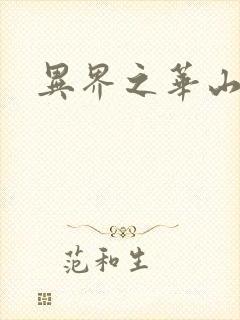 異界之華山
范和生